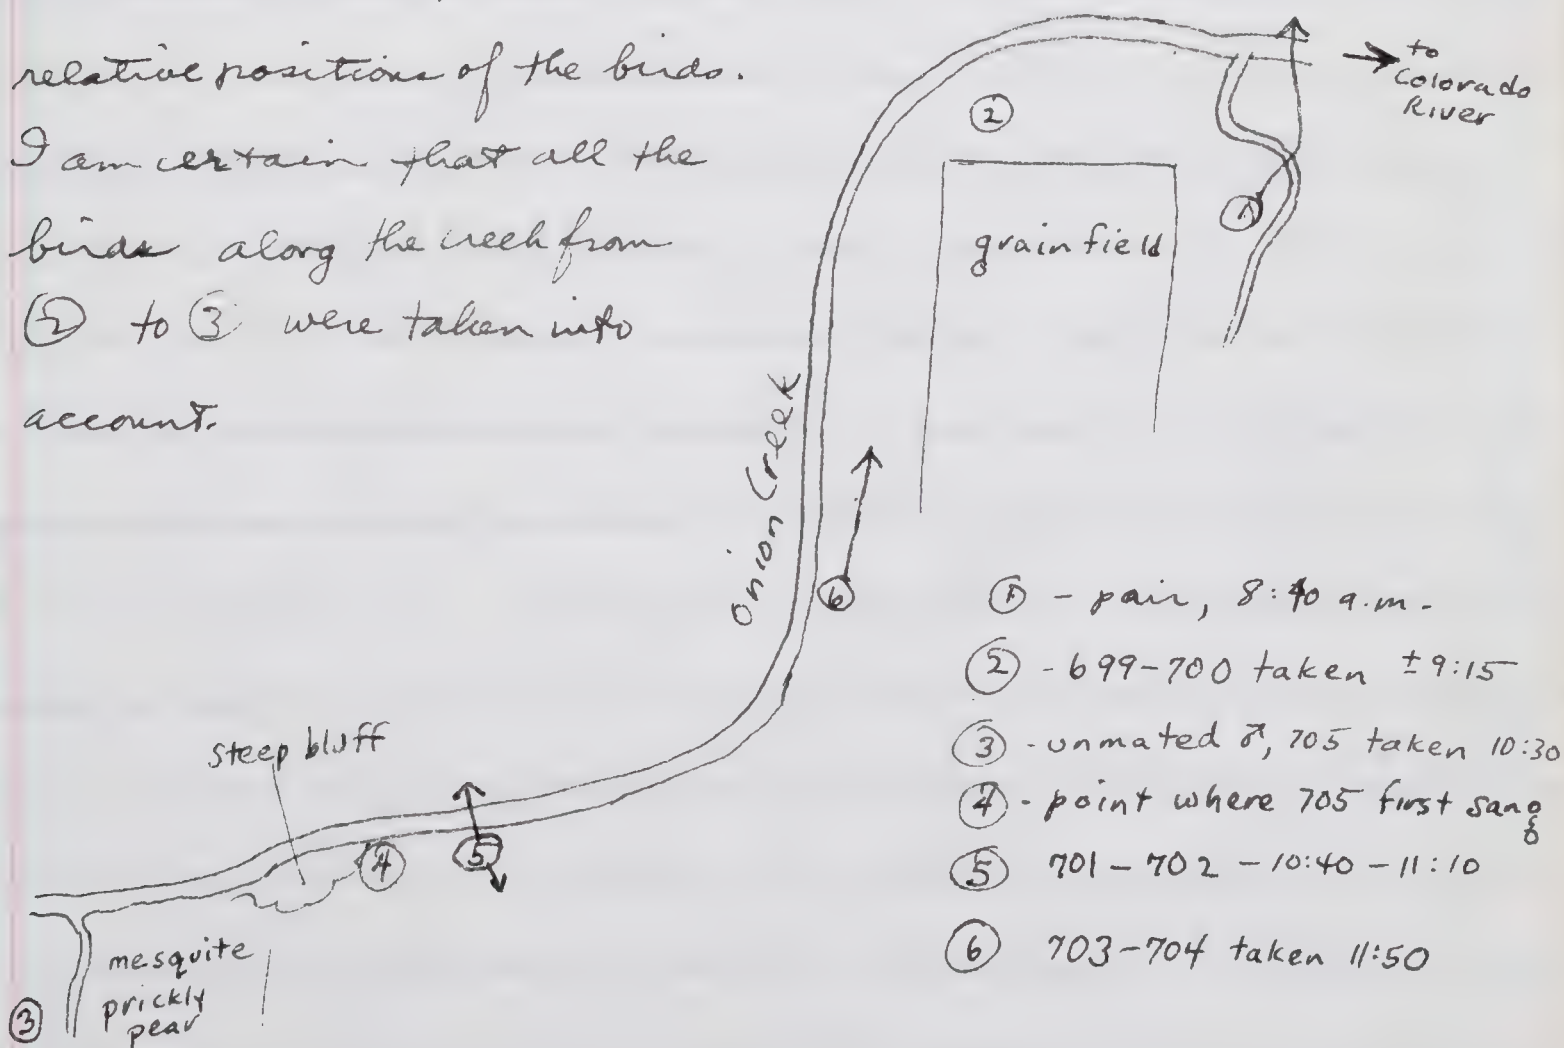 relative positions of the birds.
I am certain that all the
birds along the creek from
② to ③ were taken into
account.
to
Colorado
River
②
①
grainfield
Onion Creek
⑥
steep bluff
④
⑤
mesquite
prickly
pear
③
① - pair, 8:40 a.m.
② - 699-700 taken ± 9:15
③ - unmated ♂, 705 taken 10:30
④ - point where 705 first sang
⑤ 701-702 - 10:40 - 11:10
⑥ 703-704 taken 11:50